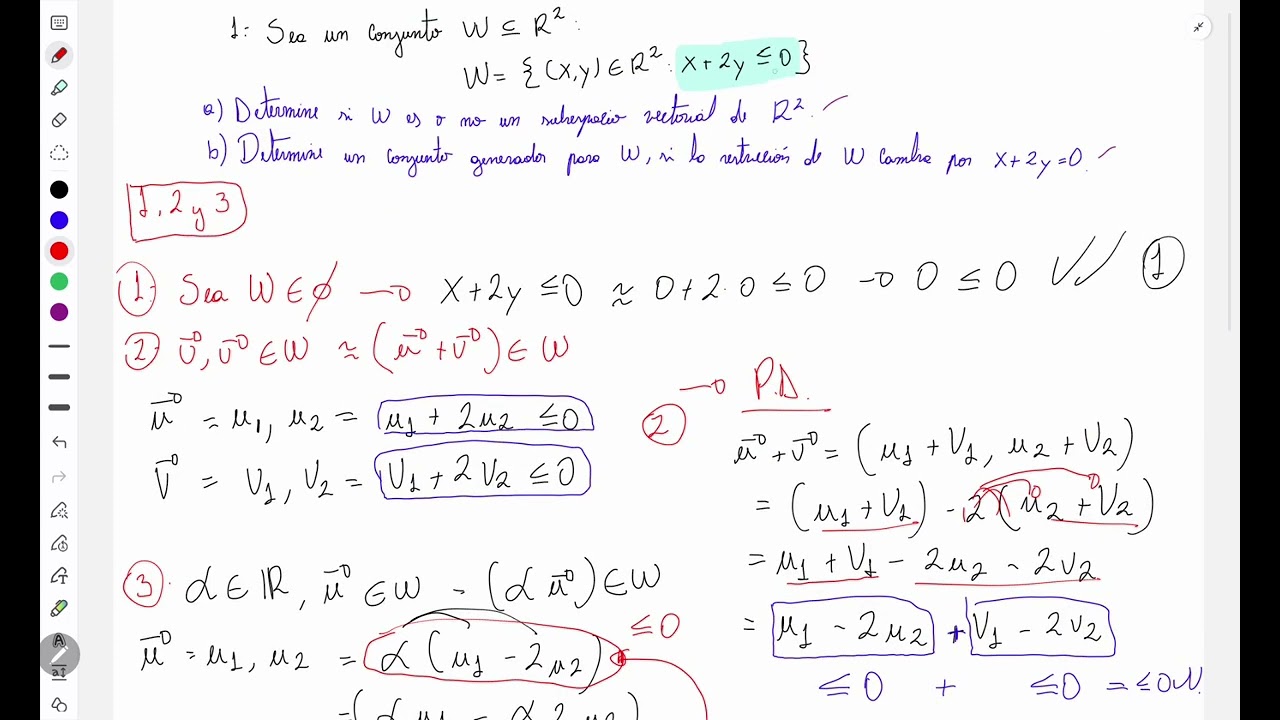 1: Sea un conjunto W ⊆ R²:
W = {(x,y) ∈ R²: x + 2y ≤ 0}
a) Determine si W es o no un subespacio vectorial de R².
b) Determine un conjunto generador para W, si la restricción de W cambia por x + 2y = 0.
1, 2 y 3
① Sea W ∈ ∅ → x + 2y ≤ 0 ≈ 0 + 2·0 ≤ 0 → 0 ≤ 0 ✓✓ ①
② v⃗, v⃗ ∈ W ≈ (u⃗ + v⃗) ∈ W
u⃗ = u₁, u₂ = u₁ + 2u₂ ≤ 0
v⃗ = v₁, v₂ = v₁ + 2v₂ ≤ 0
③ α ∈ ℝ, u⃗ ∈ W - (αu⃗) ∈ W
u⃗ = u₁, u₂ = α(u₁ - 2u₂) ≤ 0
② → P.D.
u⃗ + v⃗ = (u₁ + v₁, u₂ + v₂)
= (u₁ + v₁) - 2(u₂ + v₂)
= u₁ + v₁ - 2u₂ - 2v₂
= u₁ - 2u₂ + v₁ - 2v₂
≤ 0 + ≤ 0 = ≤ 0